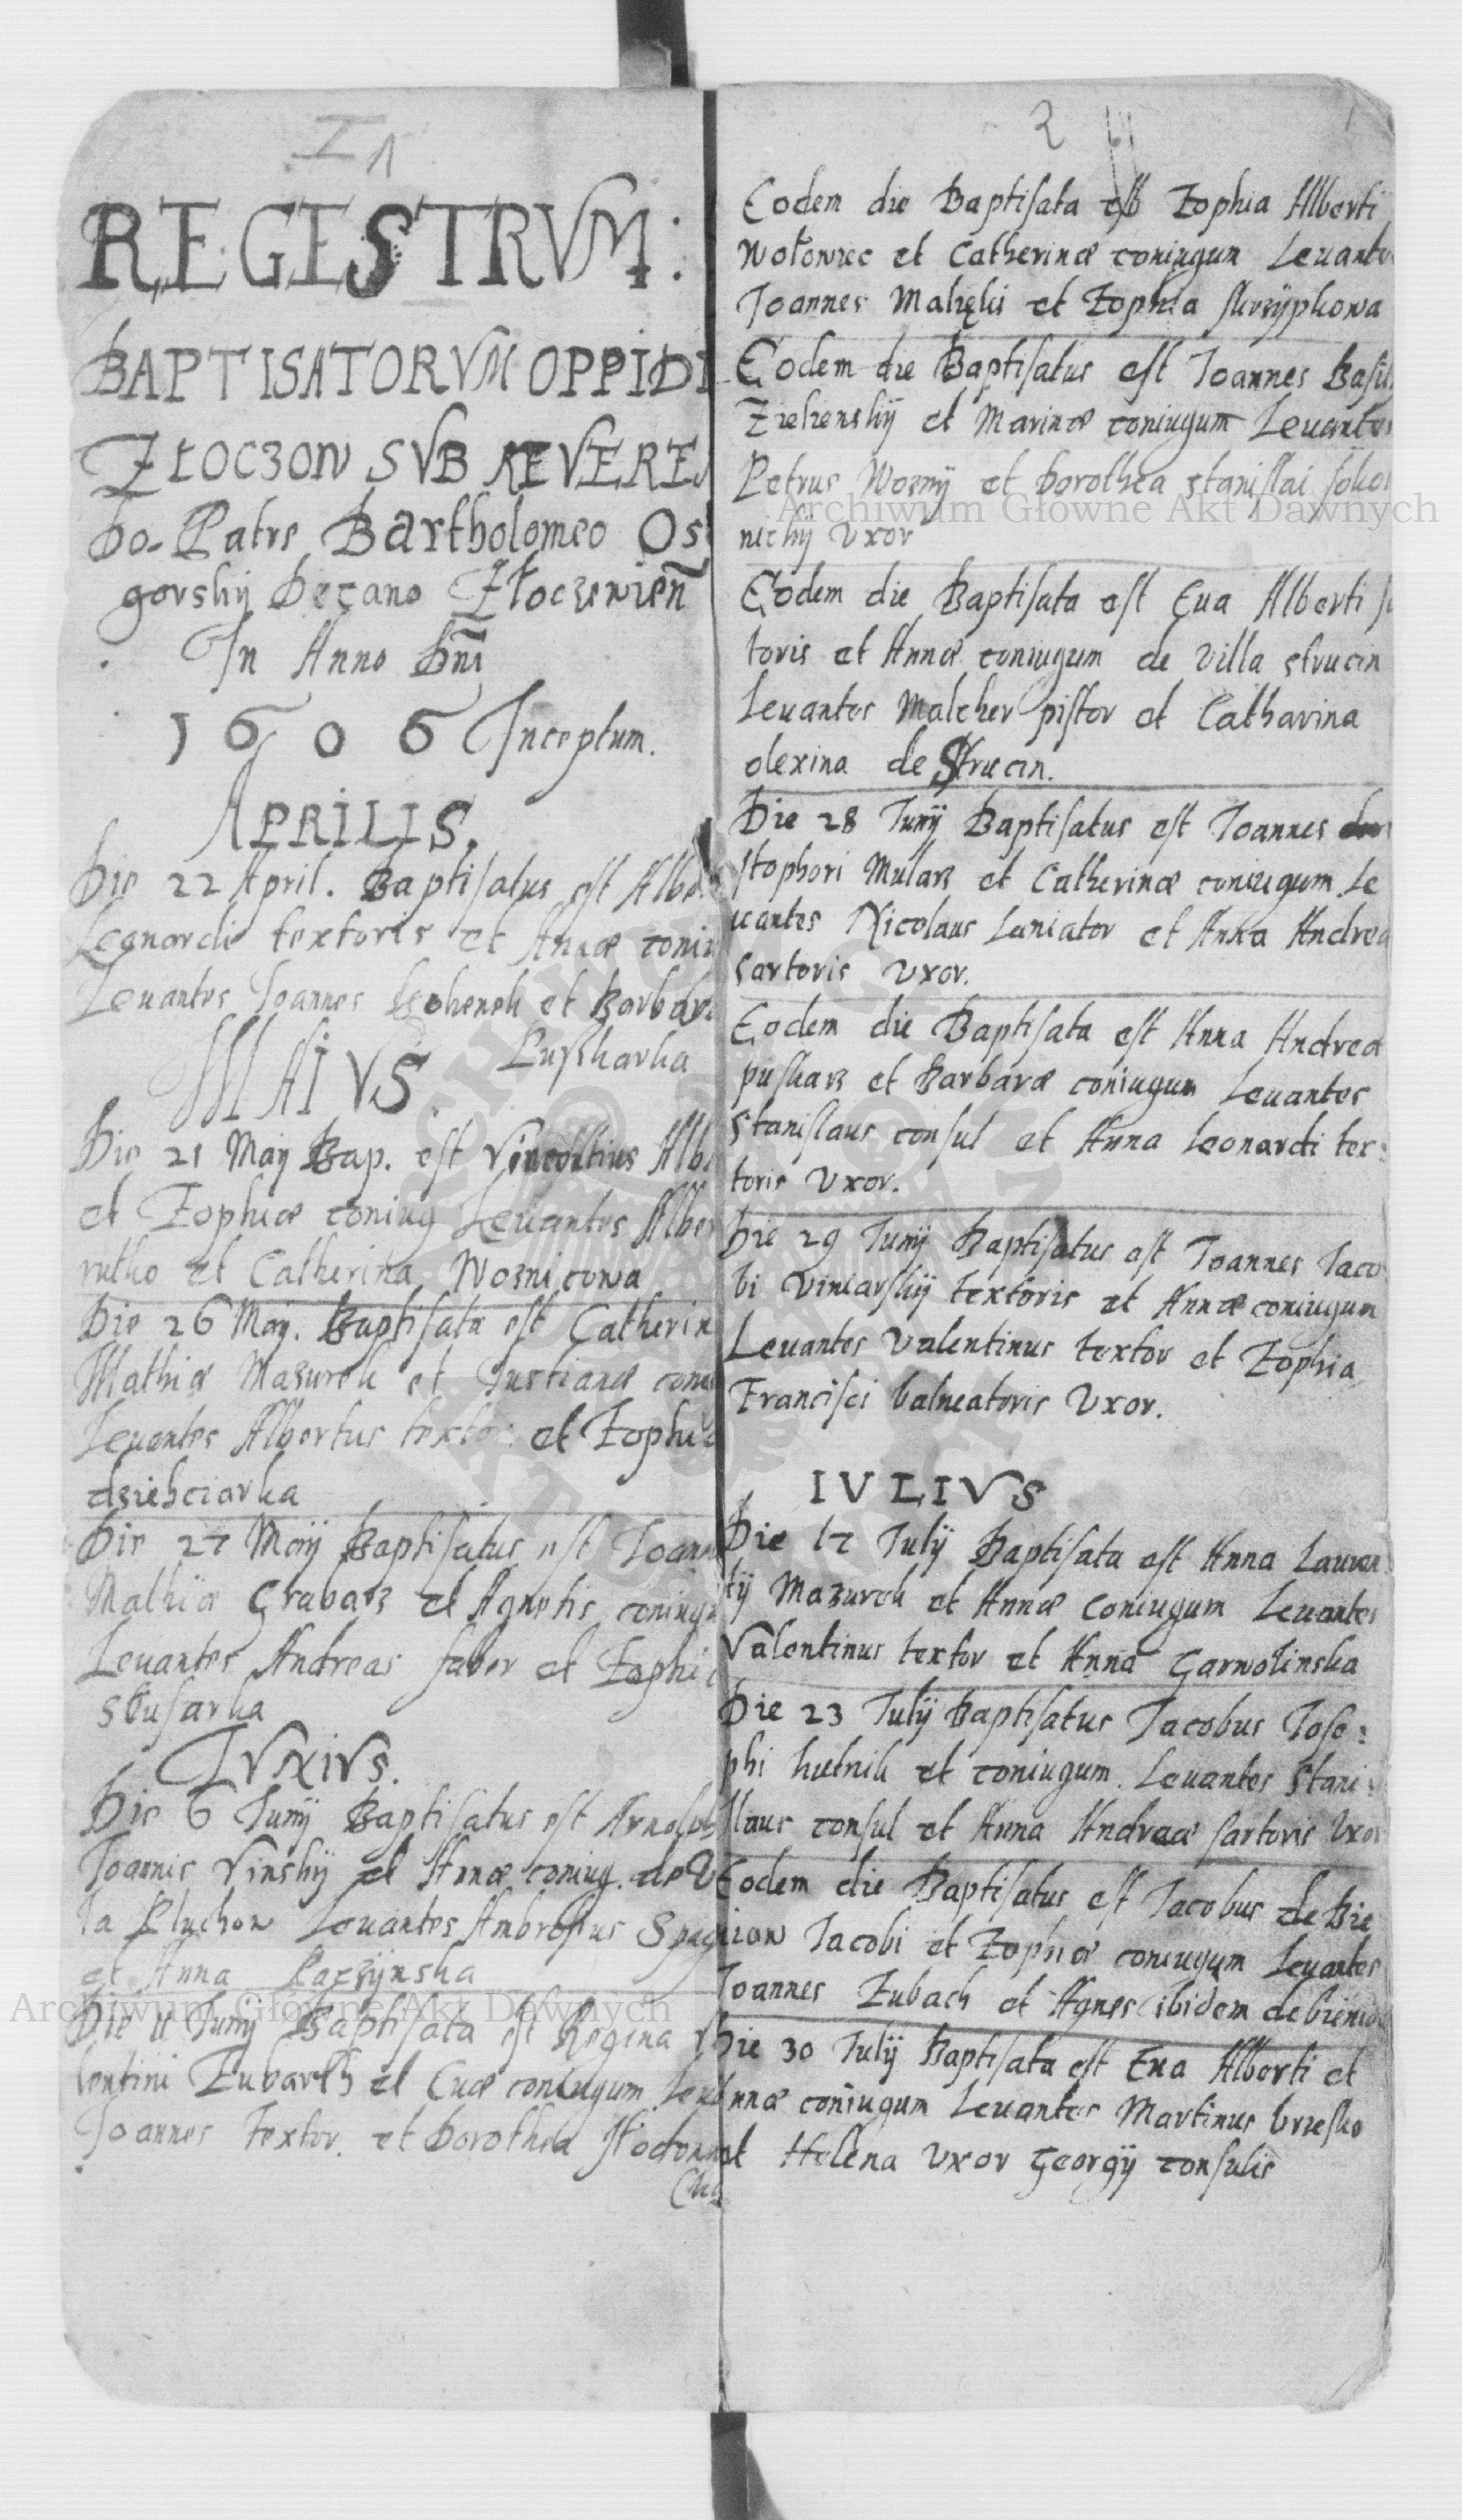 I 1
REGISTRVM:
BAPTISATORVM OPPIDI
ZŁOCZOW SVB REVEREN
Do. Patre Bartholomeo Os
gorskij Decano Złoczewień
In Anno Dnī
1606 Inceptum.
APRILIS.
Die 22 April. Baptisatus est Albe
Leonardi textoris et Annæ coniu
Levantes Joannes et Barbara
Puszkarka
MAIVS
Die 21 Maij Bap. est Albe
et Zophiæ coniug Levantes Alber
rutko et Catherina Woznicowa
Die 26 Maij. Baptisata est Catherin
Mathiæ Mazurek et Justianæ coniu
Levantes Albertus textor et Zophia
dziekciarka
Die 27 Maij Baptisatus est Joann
Mathiæ Grabarz et Agnetis coniugu
Levantes Andreas faber et Zophia
slusarka
IVNIVS.
Die 6 Junij Baptisatus est Arnolph
Joannis Vinskij et Annæ coniug. de Vi
la Pluchow Levantes Ambrosius
et Anna Paczynska
Die 11 Junij Baptisata est Regina Va
lentini et Evæ coniugum Leva
Joannes textor. et Dorothea
2
Eodem die Baptisata est Zophia Alberti
Wołowiec et Catherinæ coniugum Levante
Joannes Malięki et Zophia skrzypkowa
Eodem die Baptisatus est Joannes Basil
Zielienskij et Marinæ coniugum Levantes
Petrus Wozny et Dorothea stanislai soko
nickij Vxor
Eodem die Baptisata est Eva Alberti su
toris et Annæ coniugum de Villa strucin
Levantes Malcher pistor et Catharina
olexina de Strucin.
Die 28 Junij Baptisatus est Joannes
stophori Mularz et Catherinæ coniugum Le
uantes Nicolaus Laniator et Anna Andreæ
sartoris Vxor.
Eodem die Baptisata est Anna Andreæ
puskarz et Barbaræ coniugum Levantes
Stanislaus consul et Anna Leonardi tex:
toris Vxor.
Die 29 Junij Baptisatus est Joannes Jaco
bi Viniarskij textoris et Annæ coniugum
Levantes Valentinus textor et Zophia
Francisci balneatoris Vxor.
IVLIVS
Die 17 Julij Baptisata est Anna Lauren
tij Mazurek et Annæ Coniugum Levantes
Valentinus textor et Anna Garwolinska
Die 23 Julij Baptisatus Jacobus Jose:
phi hutnik et coniugum. Levantes Stani:
slaus consul et Anna Andreæ sartoris Vxor
Eodem die Baptisatus est Jacobus de Bie
niow Jacobi et Zophiæ coniugum Levantes
Joannes Zubach et Agnes ibidem de bieniow
Die 30 Julij Baptisata est Eua Alberti et
Annæ coniugum Levantes Martinus brzesko
et Helena Vxor Georgij consulis
Archiwum Głowne Akt Dawnych
Archiwum Głowne Akt Dawnych